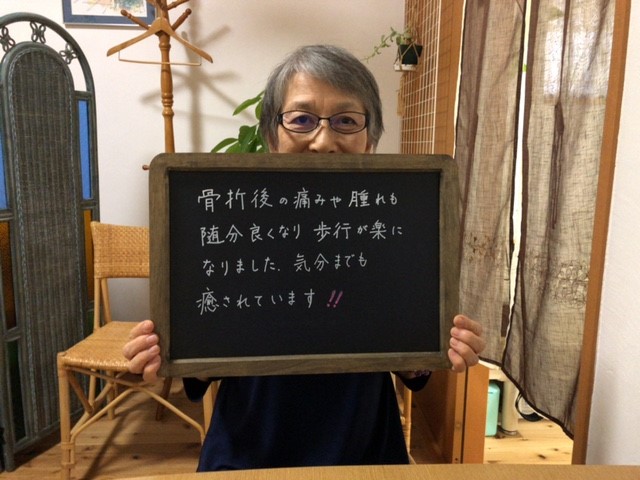 骨折後の痛みや腫れも
随分良くなり 歩行が楽に
なりました、気分までも
癒されています!!